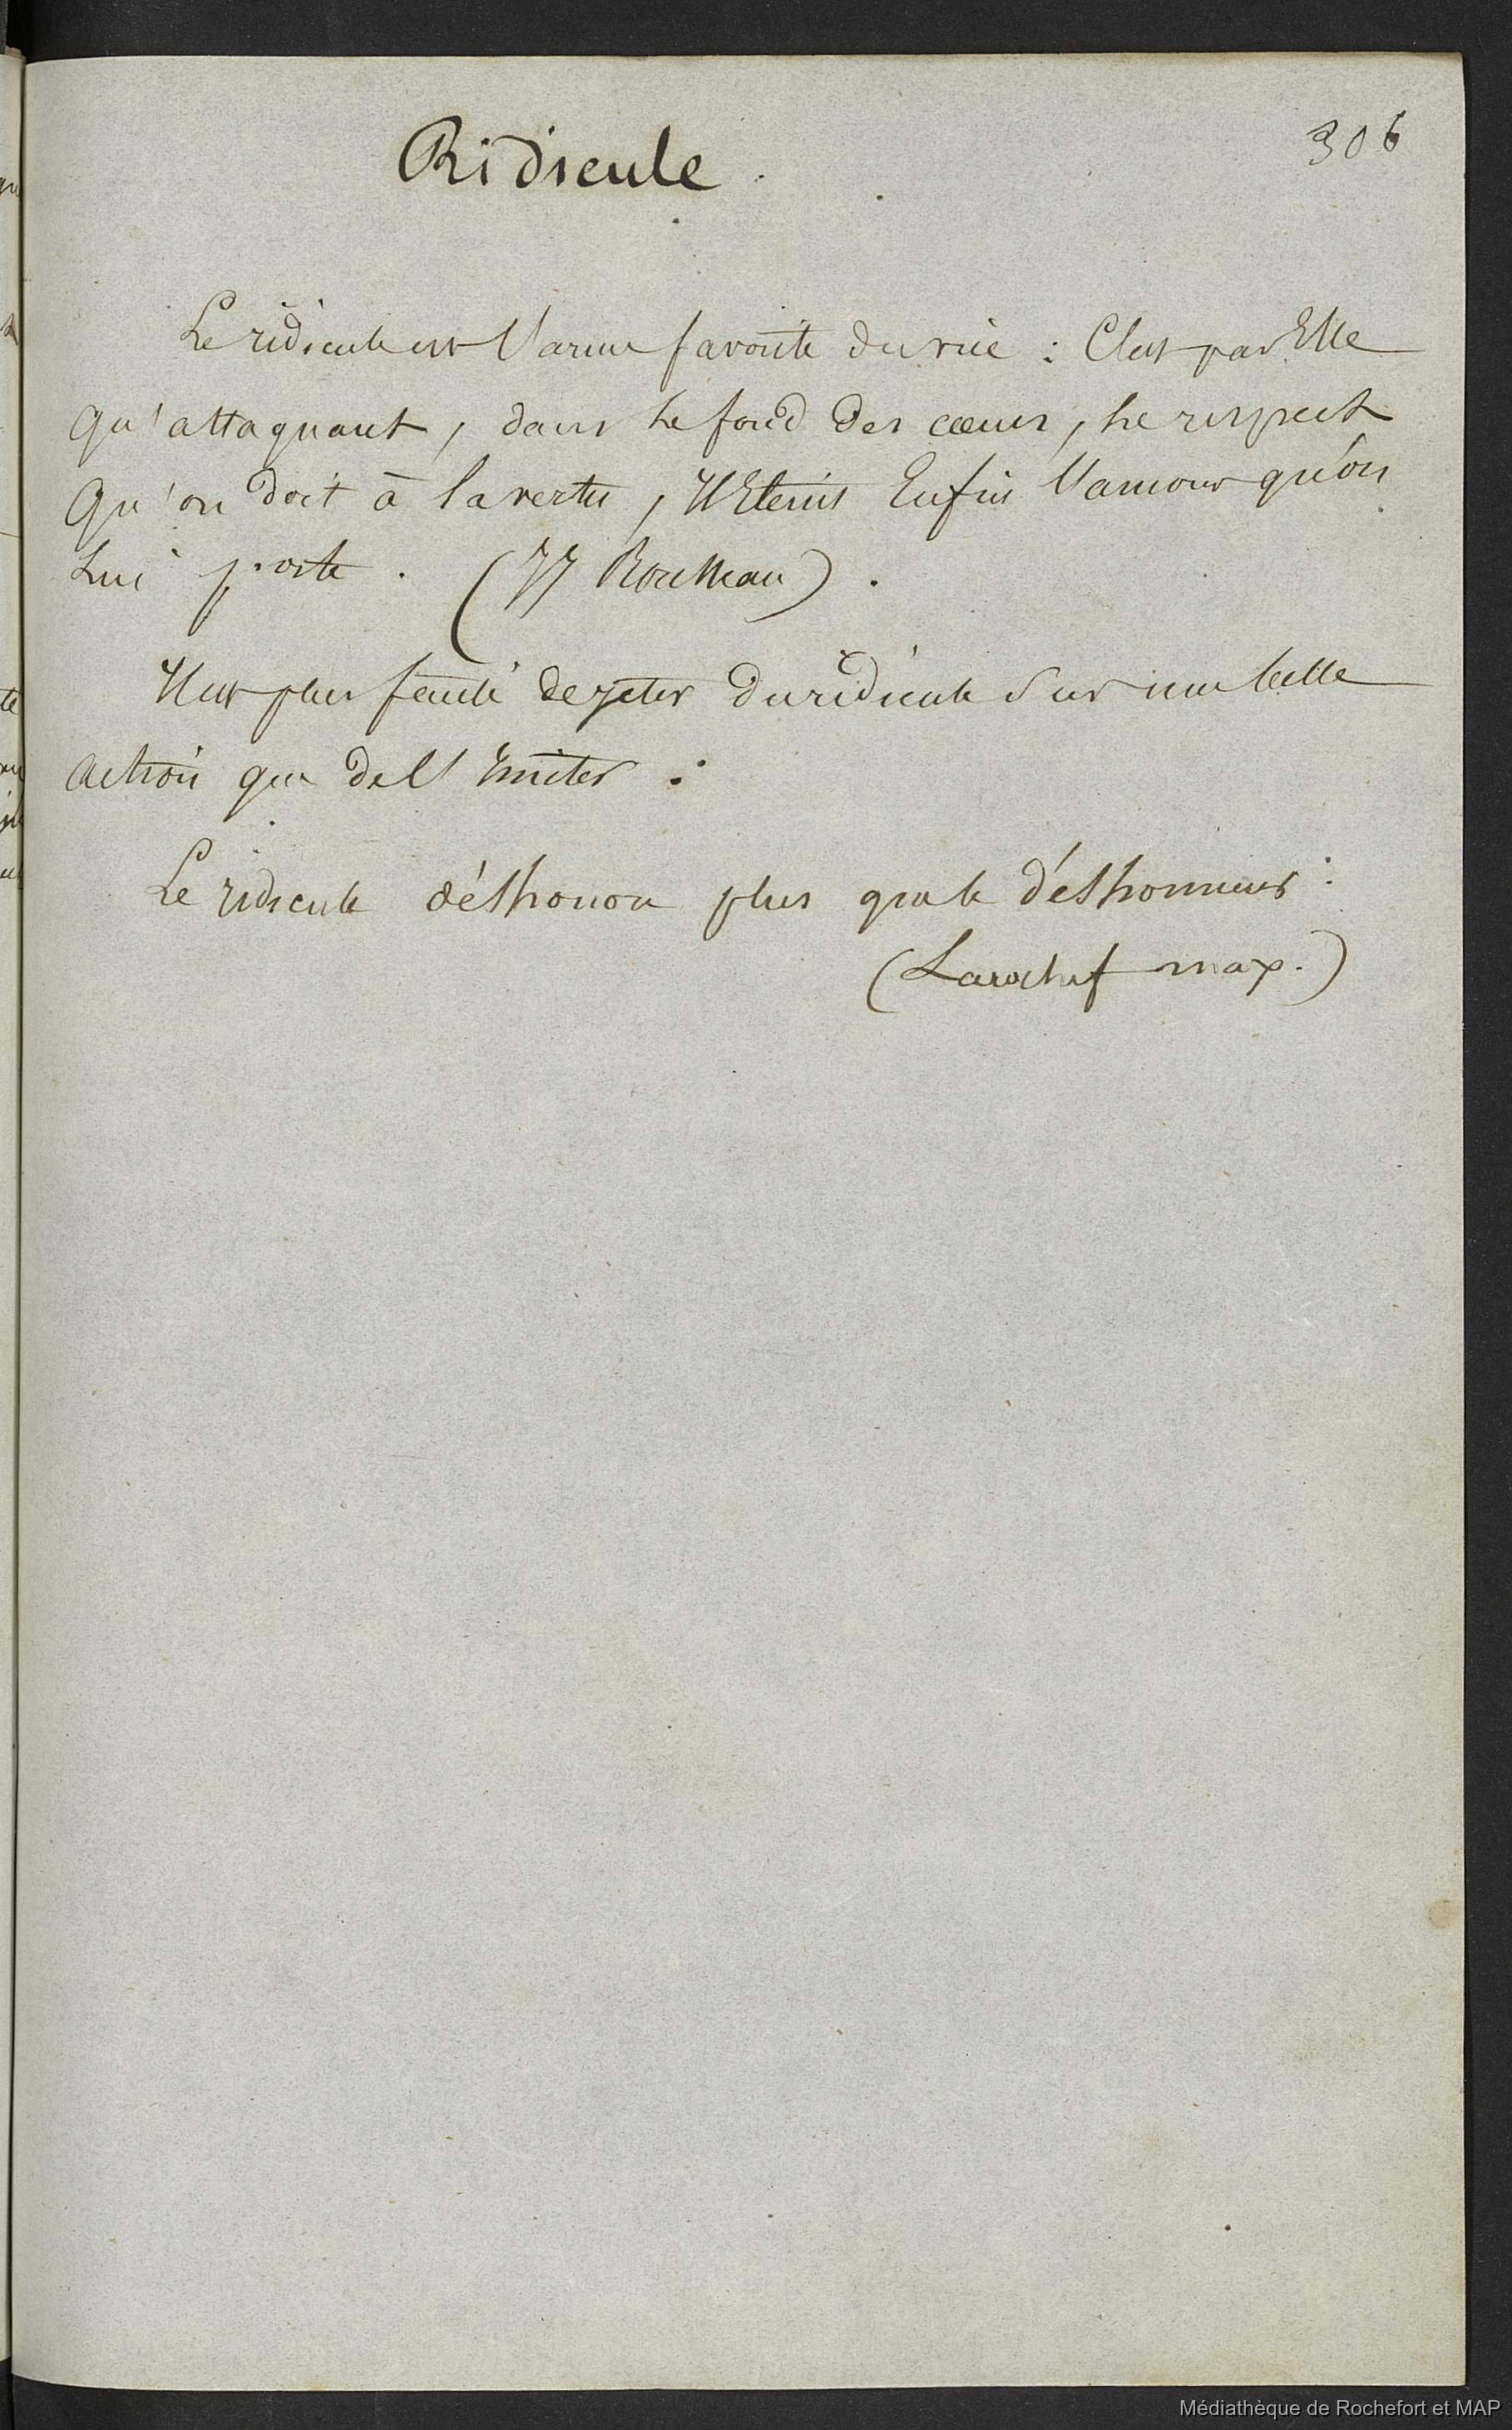 306
Ridicule.
Le ridicule est l'arme favorite du vice : C'est par Elle
qu'attaquant, dans le fond des cœurs, le respect
Qu'on doit à la vertu, Il Eteint Enfin l'amour qu'on
Lui porte. (JJ Rousseau).
Il est plus facile de jeter du ridicule sur une belle
action que de l'imiter.
Le ridicule déshonore plus que le déshonneur.
(Larochef max.)
Médiathèque de Rochefort et MAP